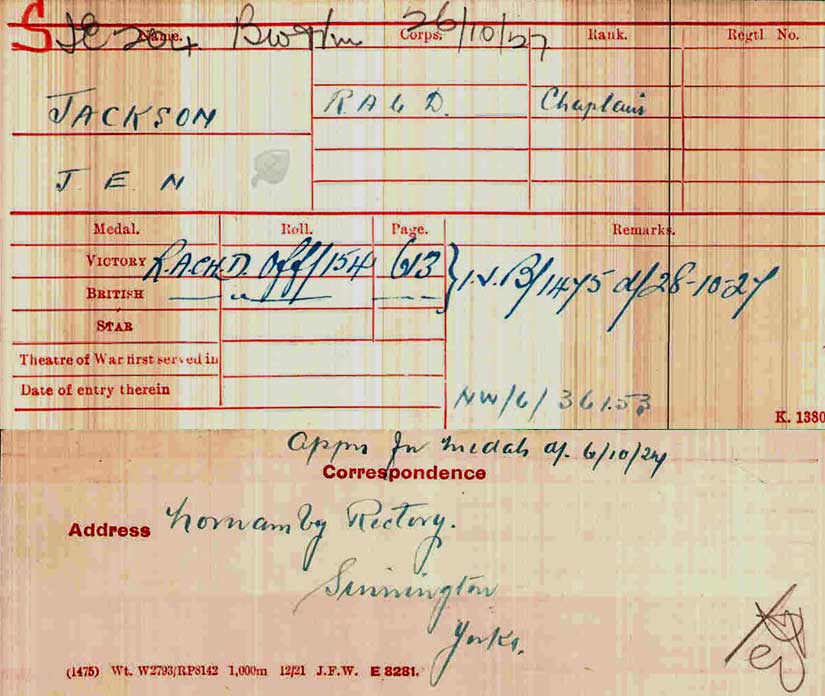 S JE 204 BW & Vm 26/10/27
Name. Corps. Rank. Regtl. No.
JACKSON R A C D. Chaplain
J E N
Medal. Roll. Page. Remarks.
VICTORY R.A.CH.D. Off/154 613 } I.V.B/1475 d/28-10-27
BRITISH — " — — " —
STAR
Theatre of War first served in
Date of entry therein
NW/6/36153
K. 1380
Appn for medals d. 6/10/27
Correspondence
Address Normanby Rectory.
Sinnington
Yorks.
(1475) Wt. W2793/RP8142 1,000m 12/21 J.F.W. E 8281.